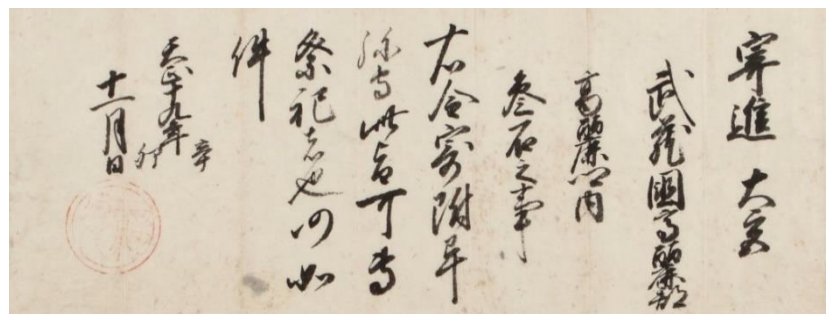 寄進 大宮
武蔵国高麗郡
高麗郷内
参石之事
右令寄附畢
弥守此旨可専
祭祀者也仍如
件
天正十九年辛卯
十一月日